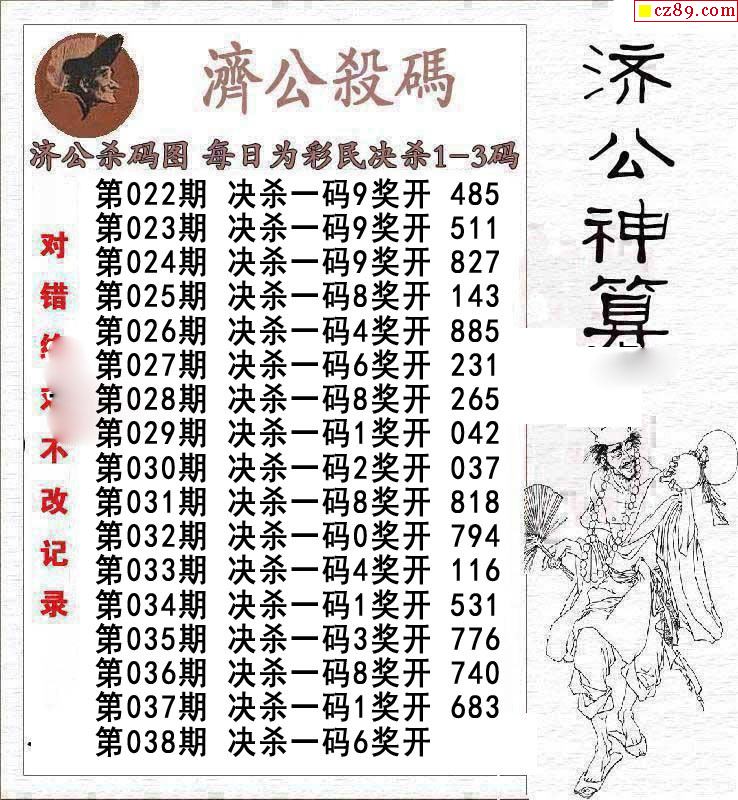 cz89.com
濟公殺碼
济公杀码图 每日为彩民决杀1-3码
第022期 决杀一码9奖开 485
第023期 决杀一码9奖开 511
第024期 决杀一码9奖开 827
第025期 决杀一码8奖开 143
第026期 决杀一码4奖开 885
第027期 决杀一码6奖开 231
第028期 决杀一码8奖开 265
第029期 决杀一码1奖开 042
第030期 决杀一码2奖开 037
第031期 决杀一码8奖开 818
第032期 决杀一码0奖开 794
第033期 决杀一码4奖开 116
第034期 决杀一码1奖开 531
第035期 决杀一码3奖开 776
第036期 决杀一码8奖开 740
第037期 决杀一码1奖开 683
第038期 决杀一码6奖开
对错
不改记录
济公神算